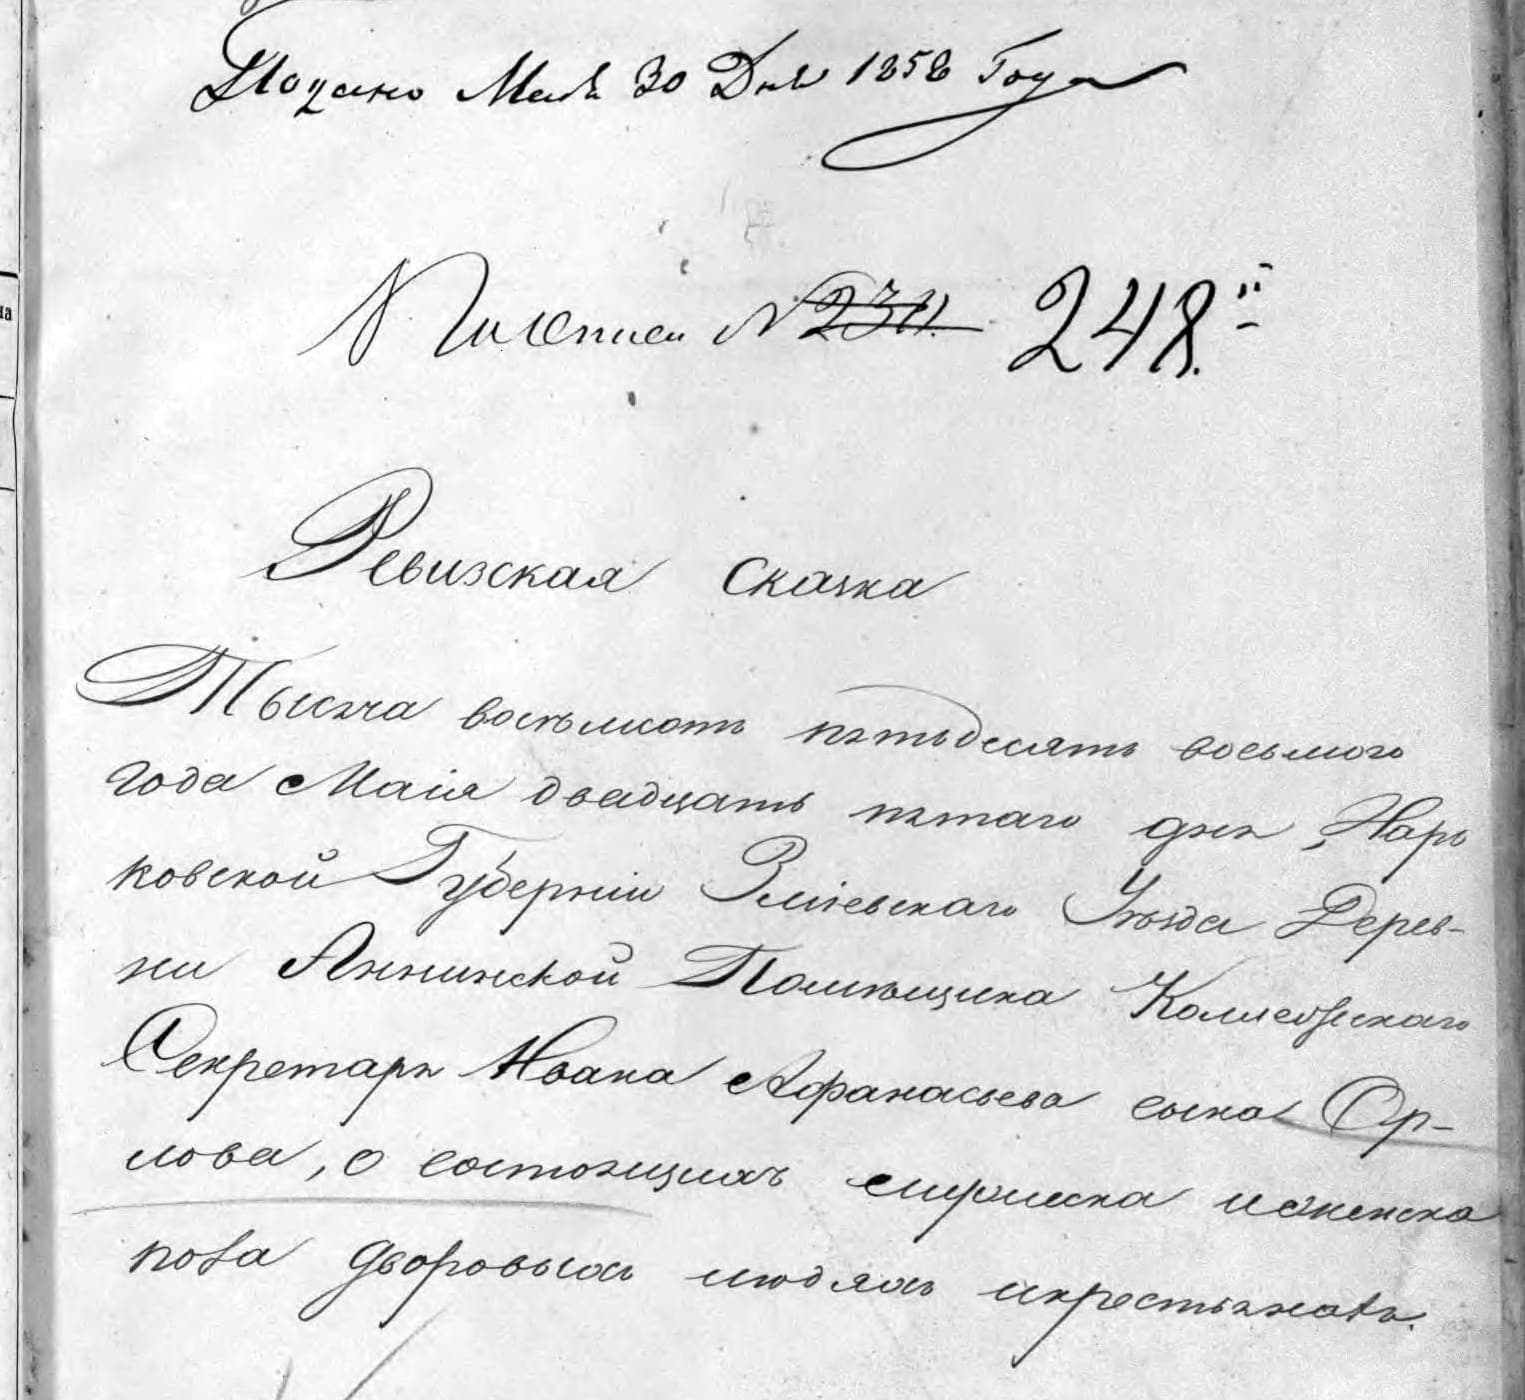 Подано Маія 30 Дня 1858 Года
По описи № 248.
Ревизская сказка
Тысяча восѣмсотъ пятьдесятъ восьмого
года Маія двадцать пятаго дня, Харь
ковской Губерніи Зміевскаго Уѣзда Дерев-
ни Аннинской Помѣщика Коллежскаго
Секретаря Ивана Афанасьева сына Ор-
лова, о состоящихъ мужеска и женска
пола дворовыхъ людяхъ и крестьянахъ.